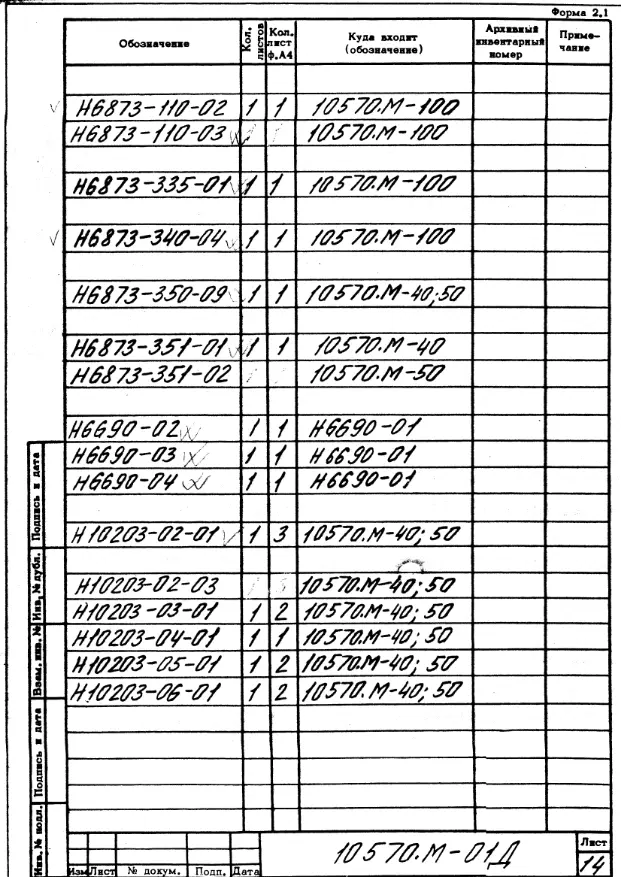 Форма 2.1
Обозначение Кол. листов Кол. лист ф.А4 Куда входит (обозначение) Архивный инвентарный номер Приме-чание
Н6873-110-02 1 1 10570.М-100
Н6873-110-03 10570.М-100
Н6873-335-01 1 1 10570.М-100
Н6873-340-04 1 1 10570.М-100
Н6873-350-09 1 1 10570.М-40;50
Н6873-351-01 1 1 10570.М-40
Н6873-351-02 10570.М-50
Н6690-02 1 1 Н6690-01
Н6690-03 1 1 Н6690-01
Н6690-04 1 1 Н6690-01
Н10203-02-01 1 3 10570.М-40; 50
Н10203-02-03 10570.М-40; 50
Н10203-03-01 1 2 10570.М-40; 50
Н10203-04-01 1 1 10570.М-40; 50
Н10203-05-01 1 2 10570.М-40; 50
Н10203-06-01 1 2 10570.М-40; 50
Подпись и дата
Инв. № дубл.
Взам. инв. №
Подпись и дата
Инв. № подл.
Изм Лист № докум. Подп. Дата
10570.М-01Д
Лист
14